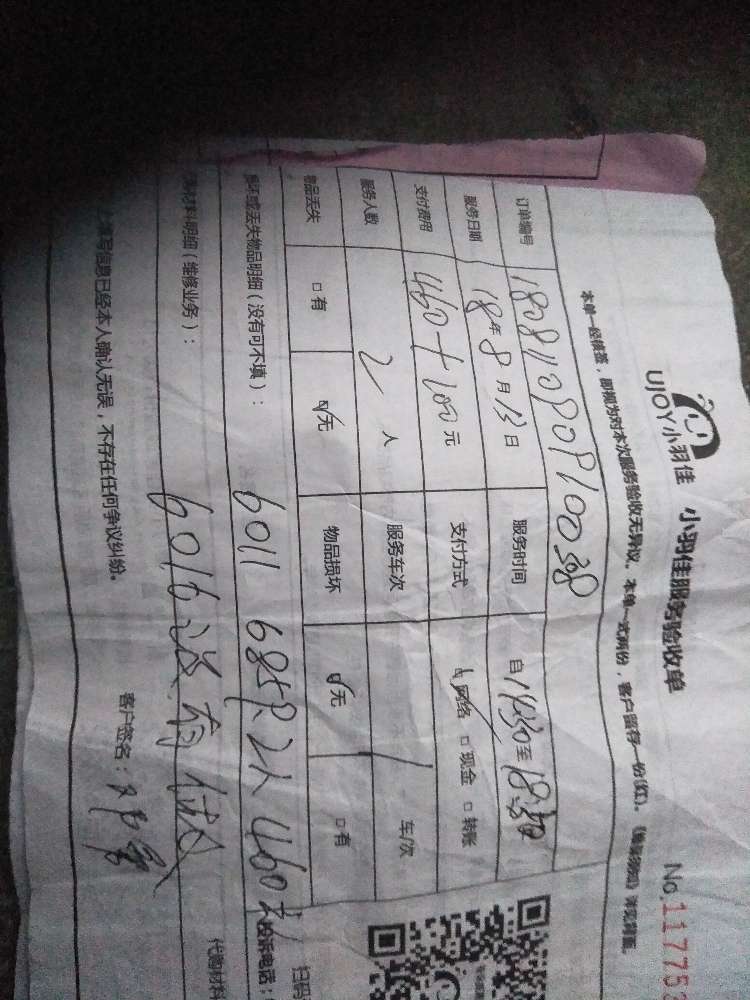 UJOY小羽佳 小羽佳服务验收单
No.11775
本单一经核签，即视为对本次服务验收无异议。本单一式两份，客户留存一份(红)。
订单编号
服务日期 18年8月13日 服务时间 自14:30至18:30
支付费用 460+100元 支付方式 网络 □现金 □转账
服务人数 2人 服务车次 / 车/次
物品丢失 □有 ☑无 物品损坏 ☑无 □有
损坏或丢失物品明细（没有可不填）：
6011 6859 2人 460元
材料明细（维修业务）：
6016没有
代购材料
投诉电话：
扫码
填写信息已经本人确认无误，不存在任何争议纠纷。
客户签名：